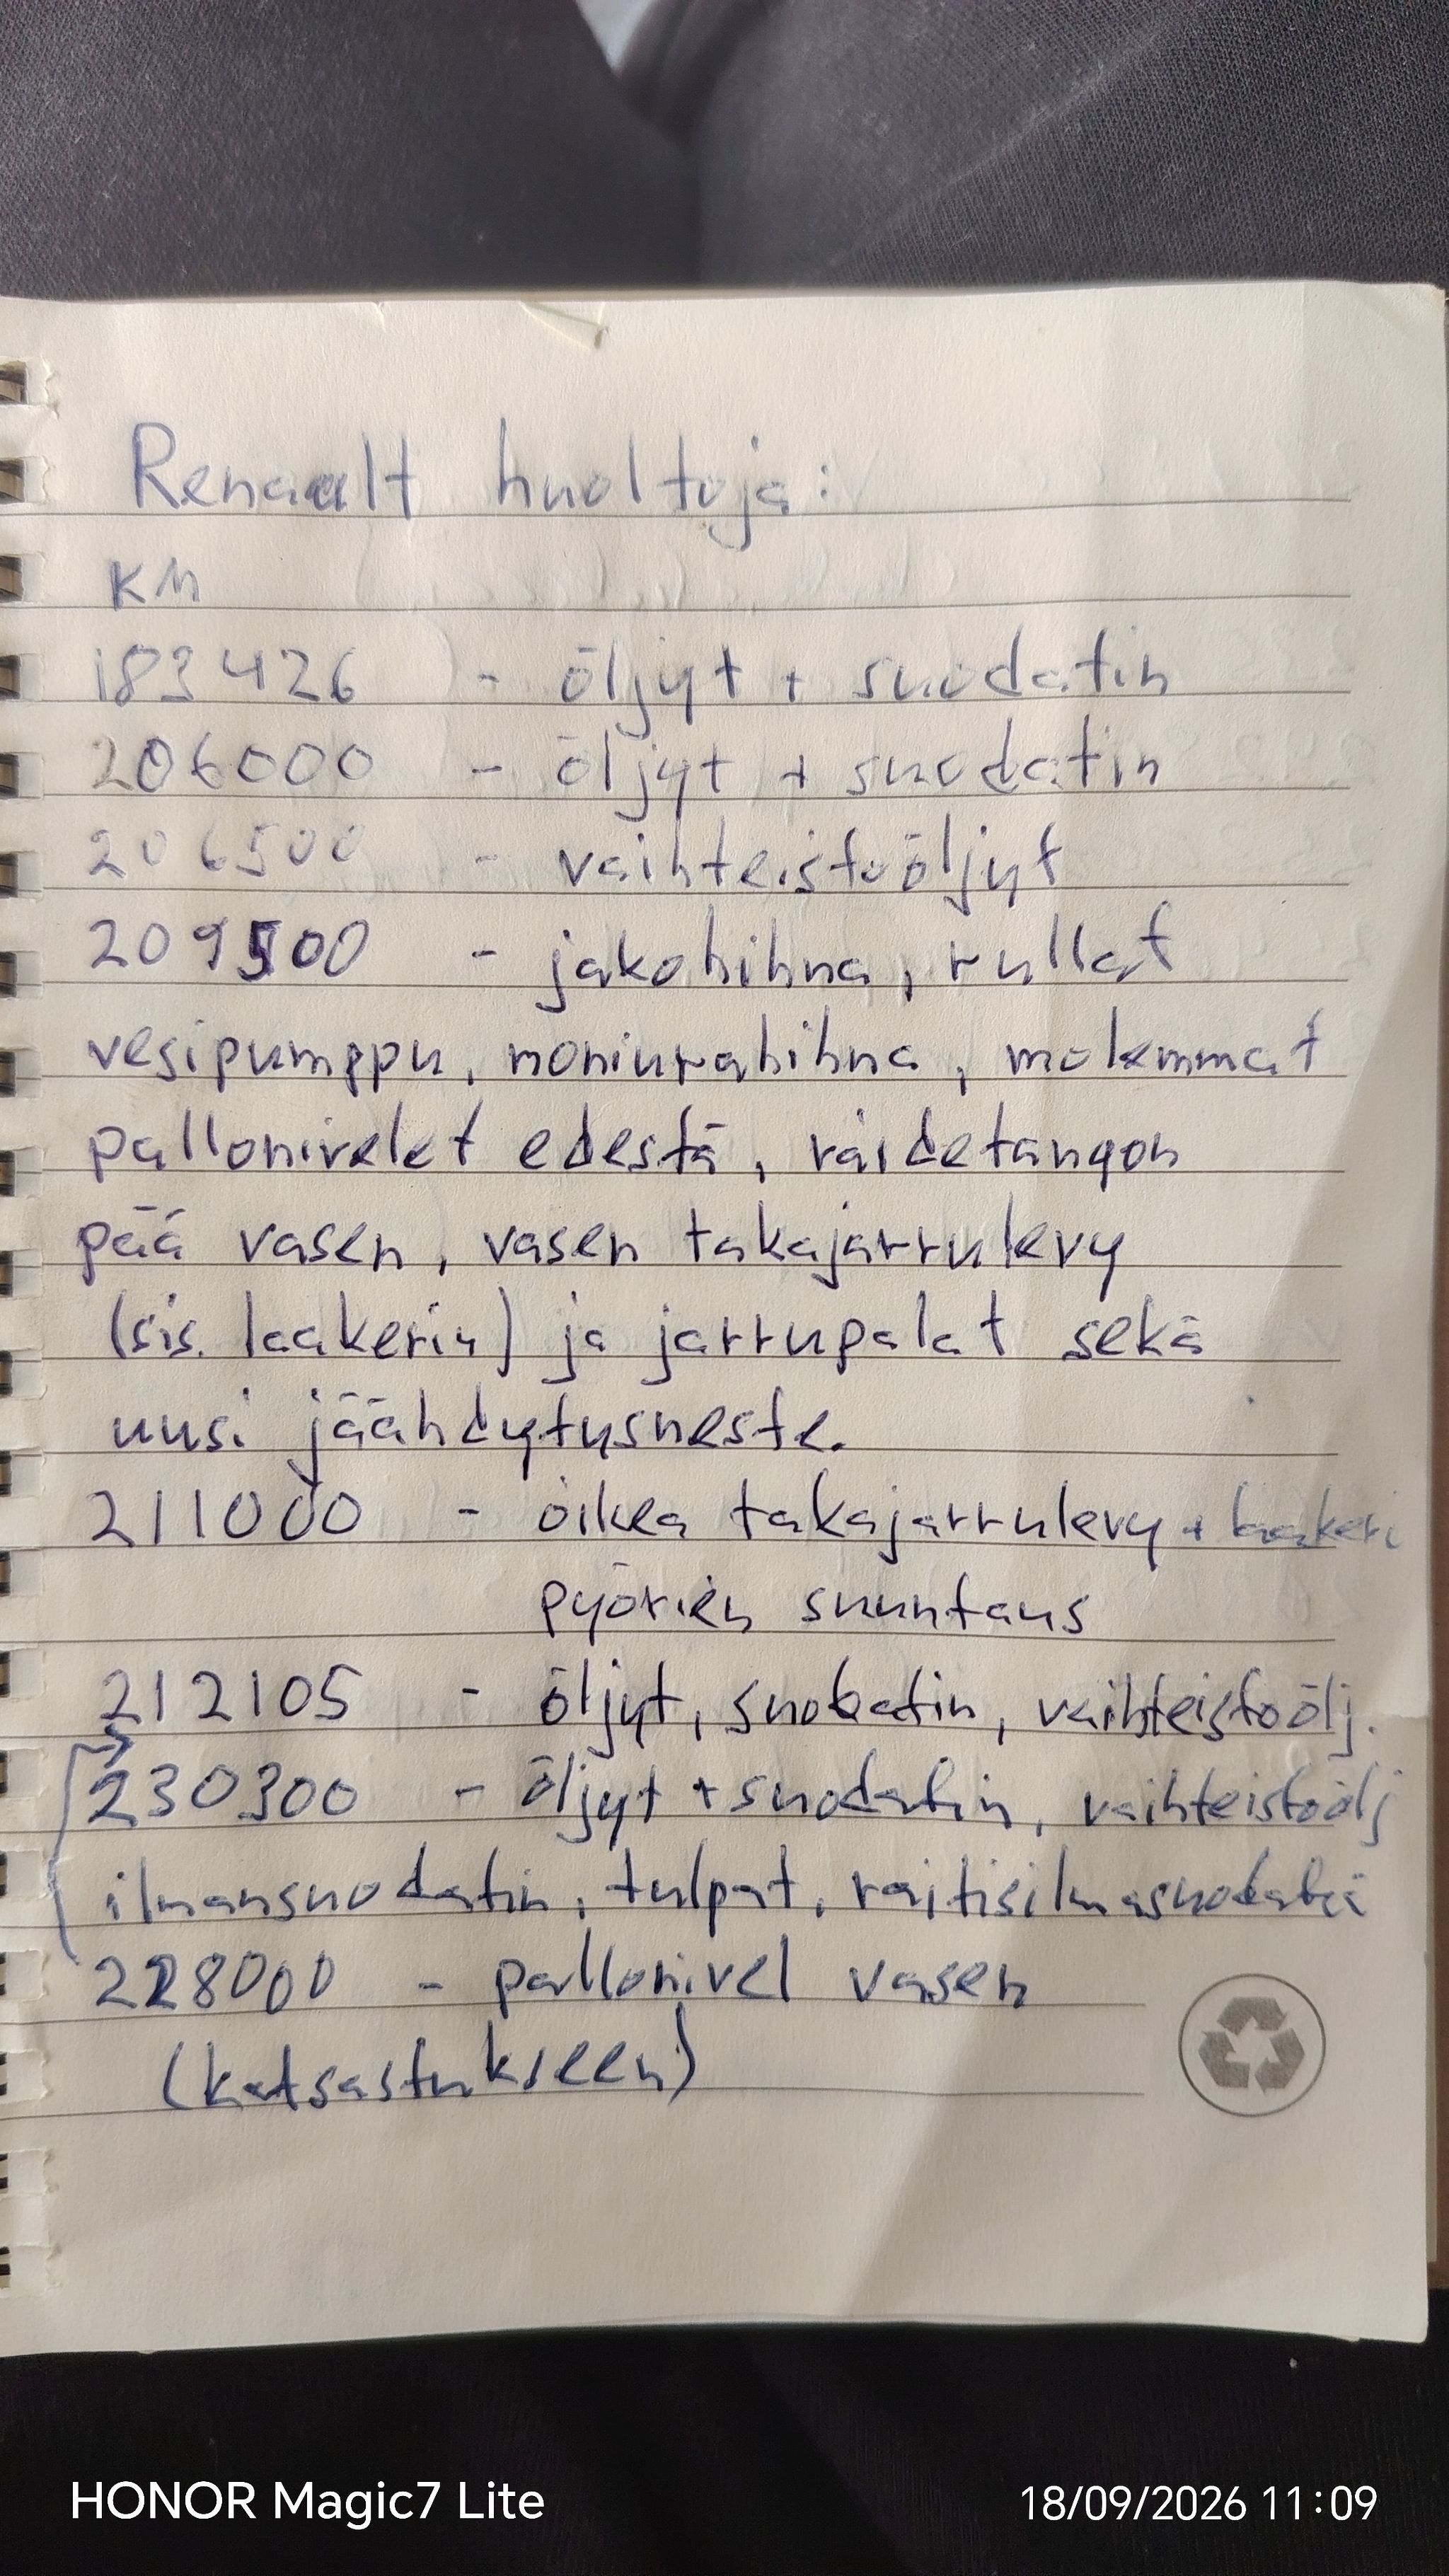 Renault huoltoja:
KM
183426 - öljyt + suodatin
206000 - öljyt + suodatin
206500 - vaihteistoöljyt
209500 - jakohihna, rullat
vesipumppu, moniurahihna, molemmat
pallonivelet edestä, raidetangon
pää vasen, vasen takajarrulevy
(sis. laakerin) ja jarrupalat sekä
uusi jäähdytysneste.
211000 - oikea takajarrulevy + laakeri
pyörien suuntaus
212105 - öljyt, suodatin, vaihteistoölj.
230300 - öljyt + suodatin, vaihteistoölj
ilmansuodatin, tulpat, raitisilmasuodatin
228000 - pallonivel vasen
(katsastukseen)
HONOR Magic7 Lite
18/09/2026 11:09